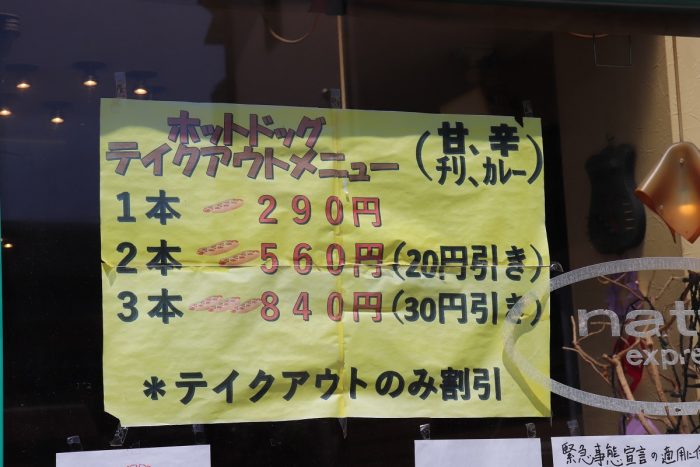 ホットドッグ
テイクアウトメニュー
(甘、辛
チリ、カレー)
1本 290円
2本 560円(20円引き)
3本 840円(30円引き)
*テイクアウトのみ割引
nat
expre
緊急事態宣言の適用に